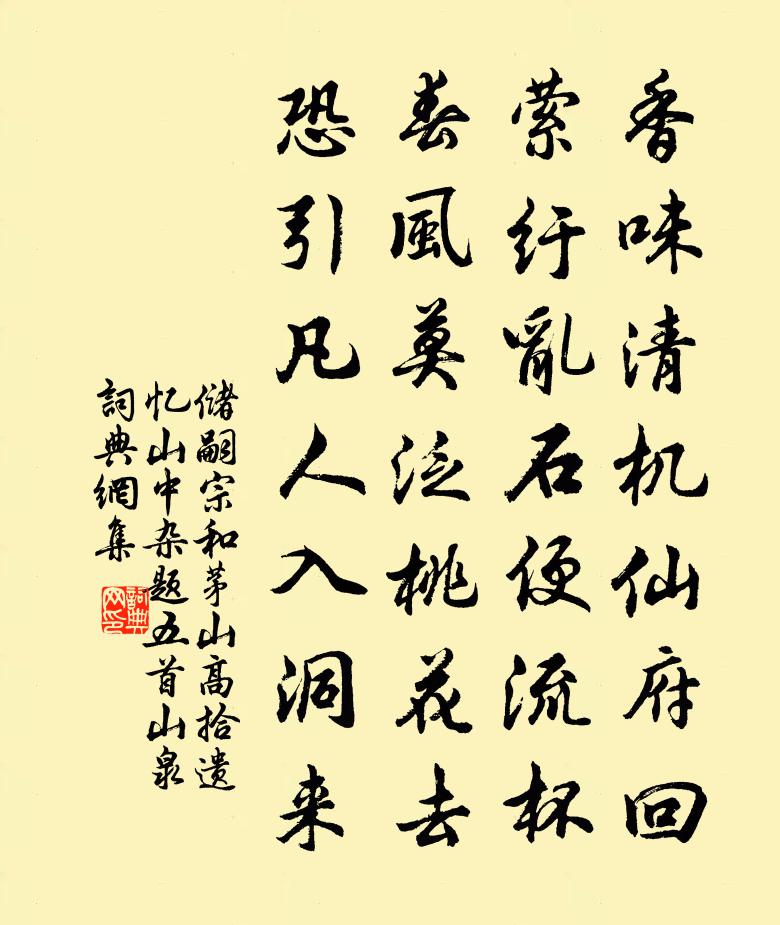 香味清机仙府回
萦纡亂石便流杯
春風莫泛桃花去
恐引凡人入洞来
储嗣宗和茅山高拾遗
忆山中杂题五首山泉
詞典網集
詞典网印